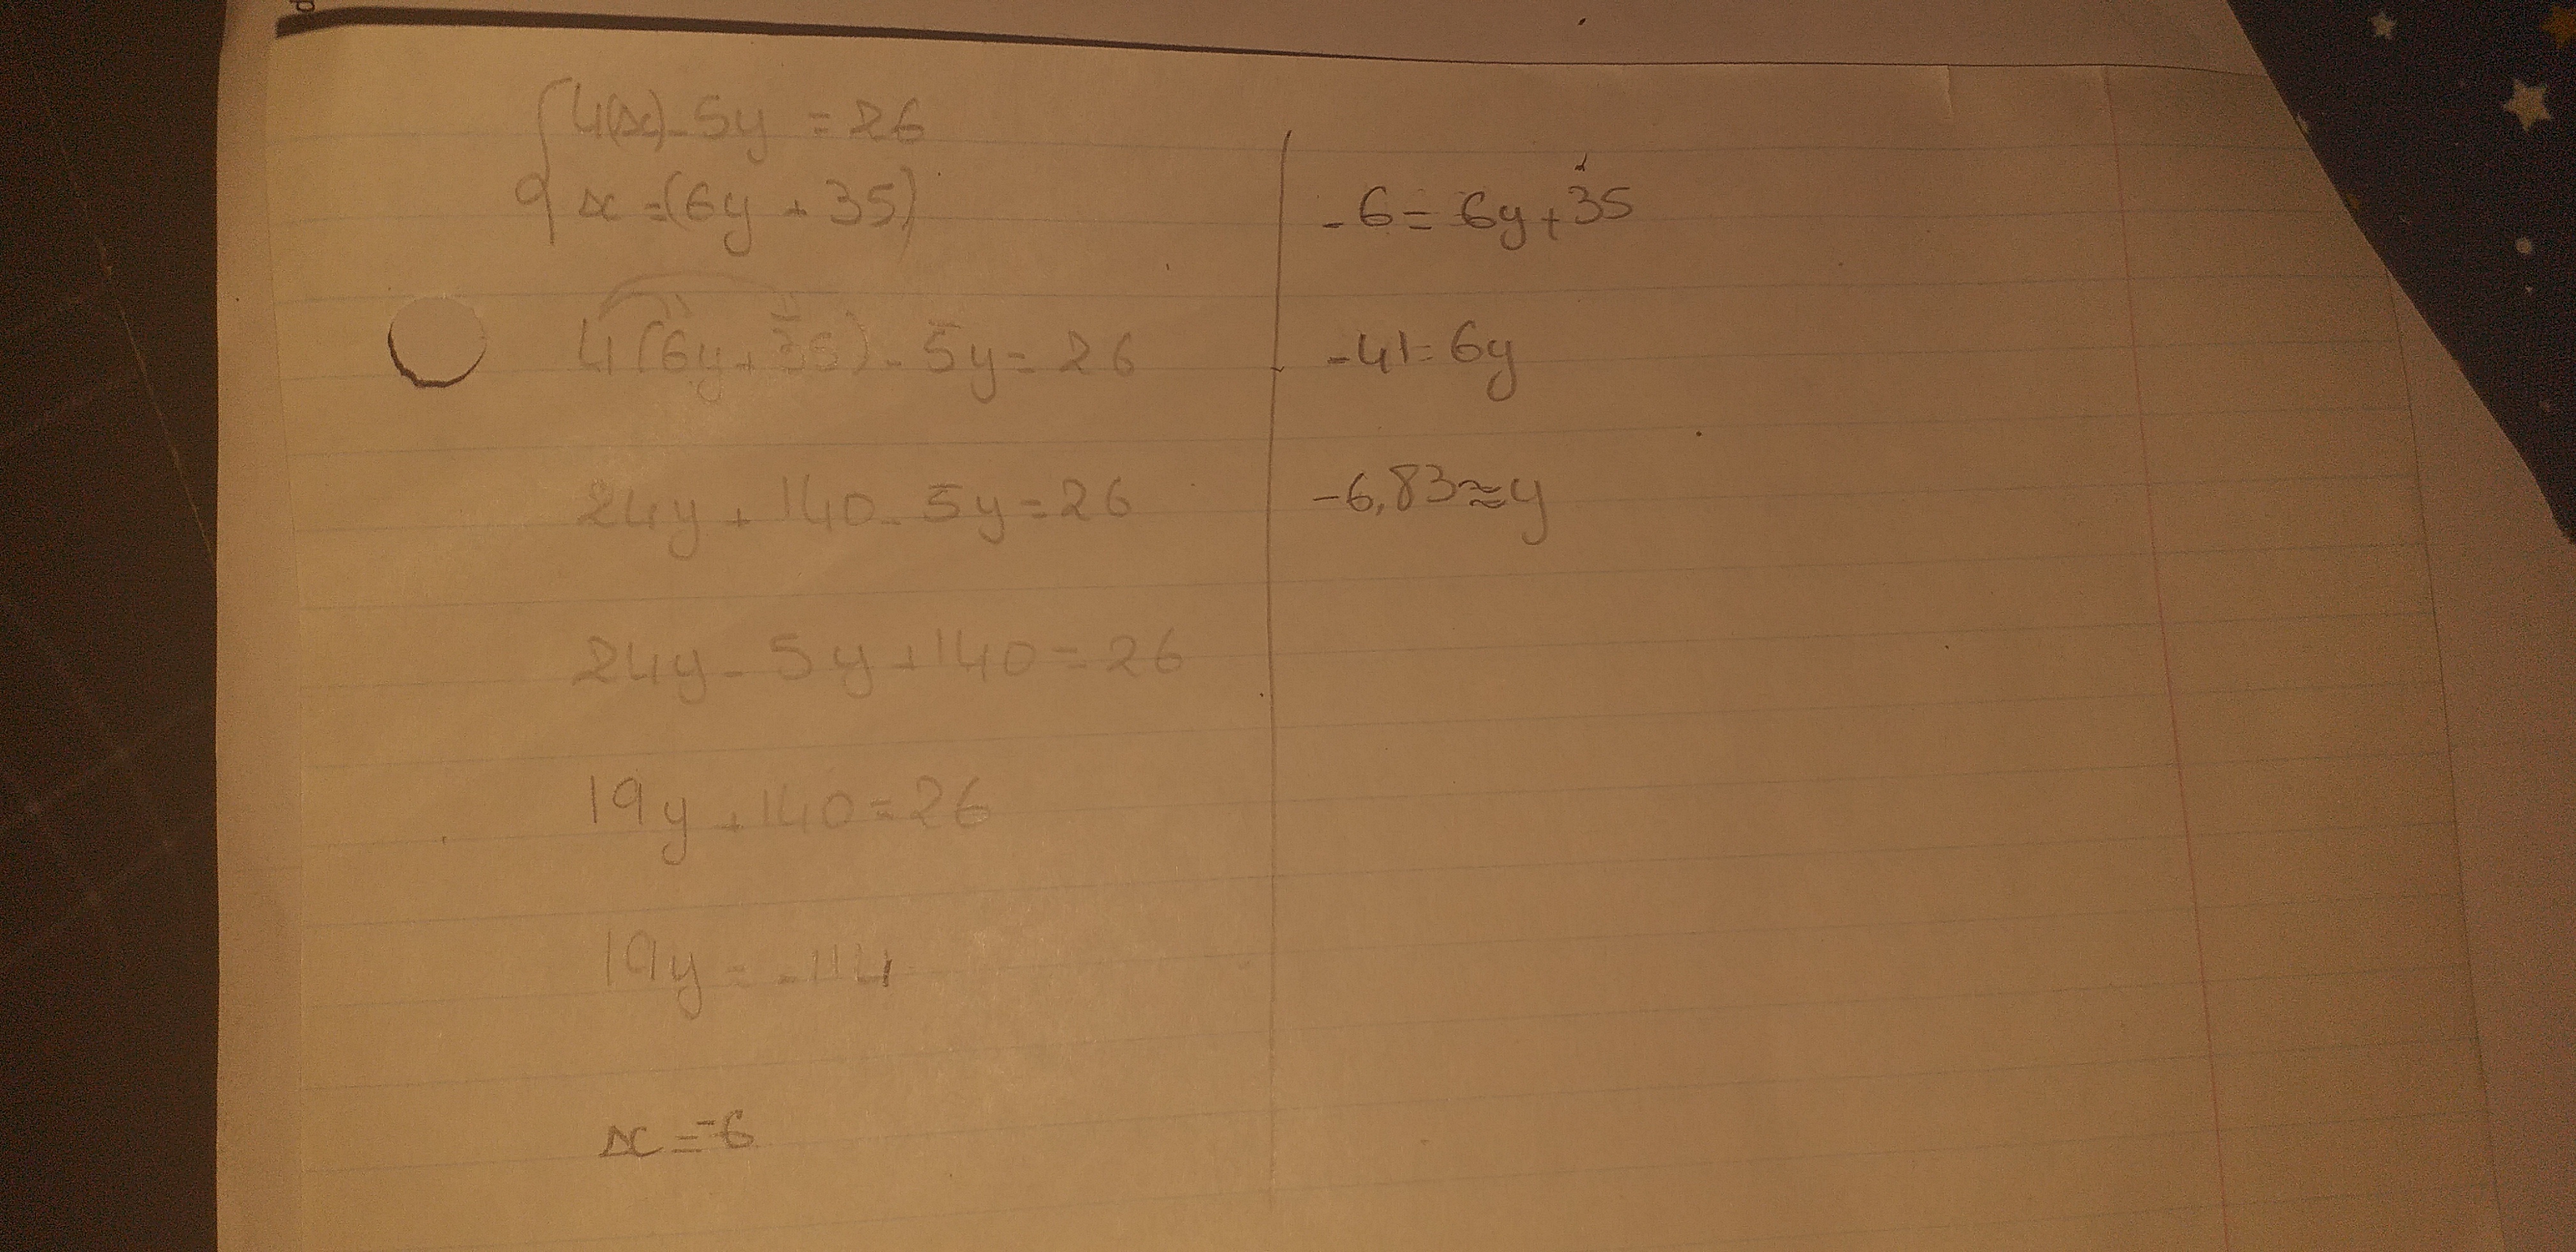 4(x) - 5y = 26
x = (6y + 35)
4(6y + 35) - 5y = 26
24y + 140 - 5y = 26
24y - 5y + 140 = 26
19y + 140 = 26
19y = -114
x = -6
-6 = 6y + 35
-41 = 6y
-6,83 ≈ y